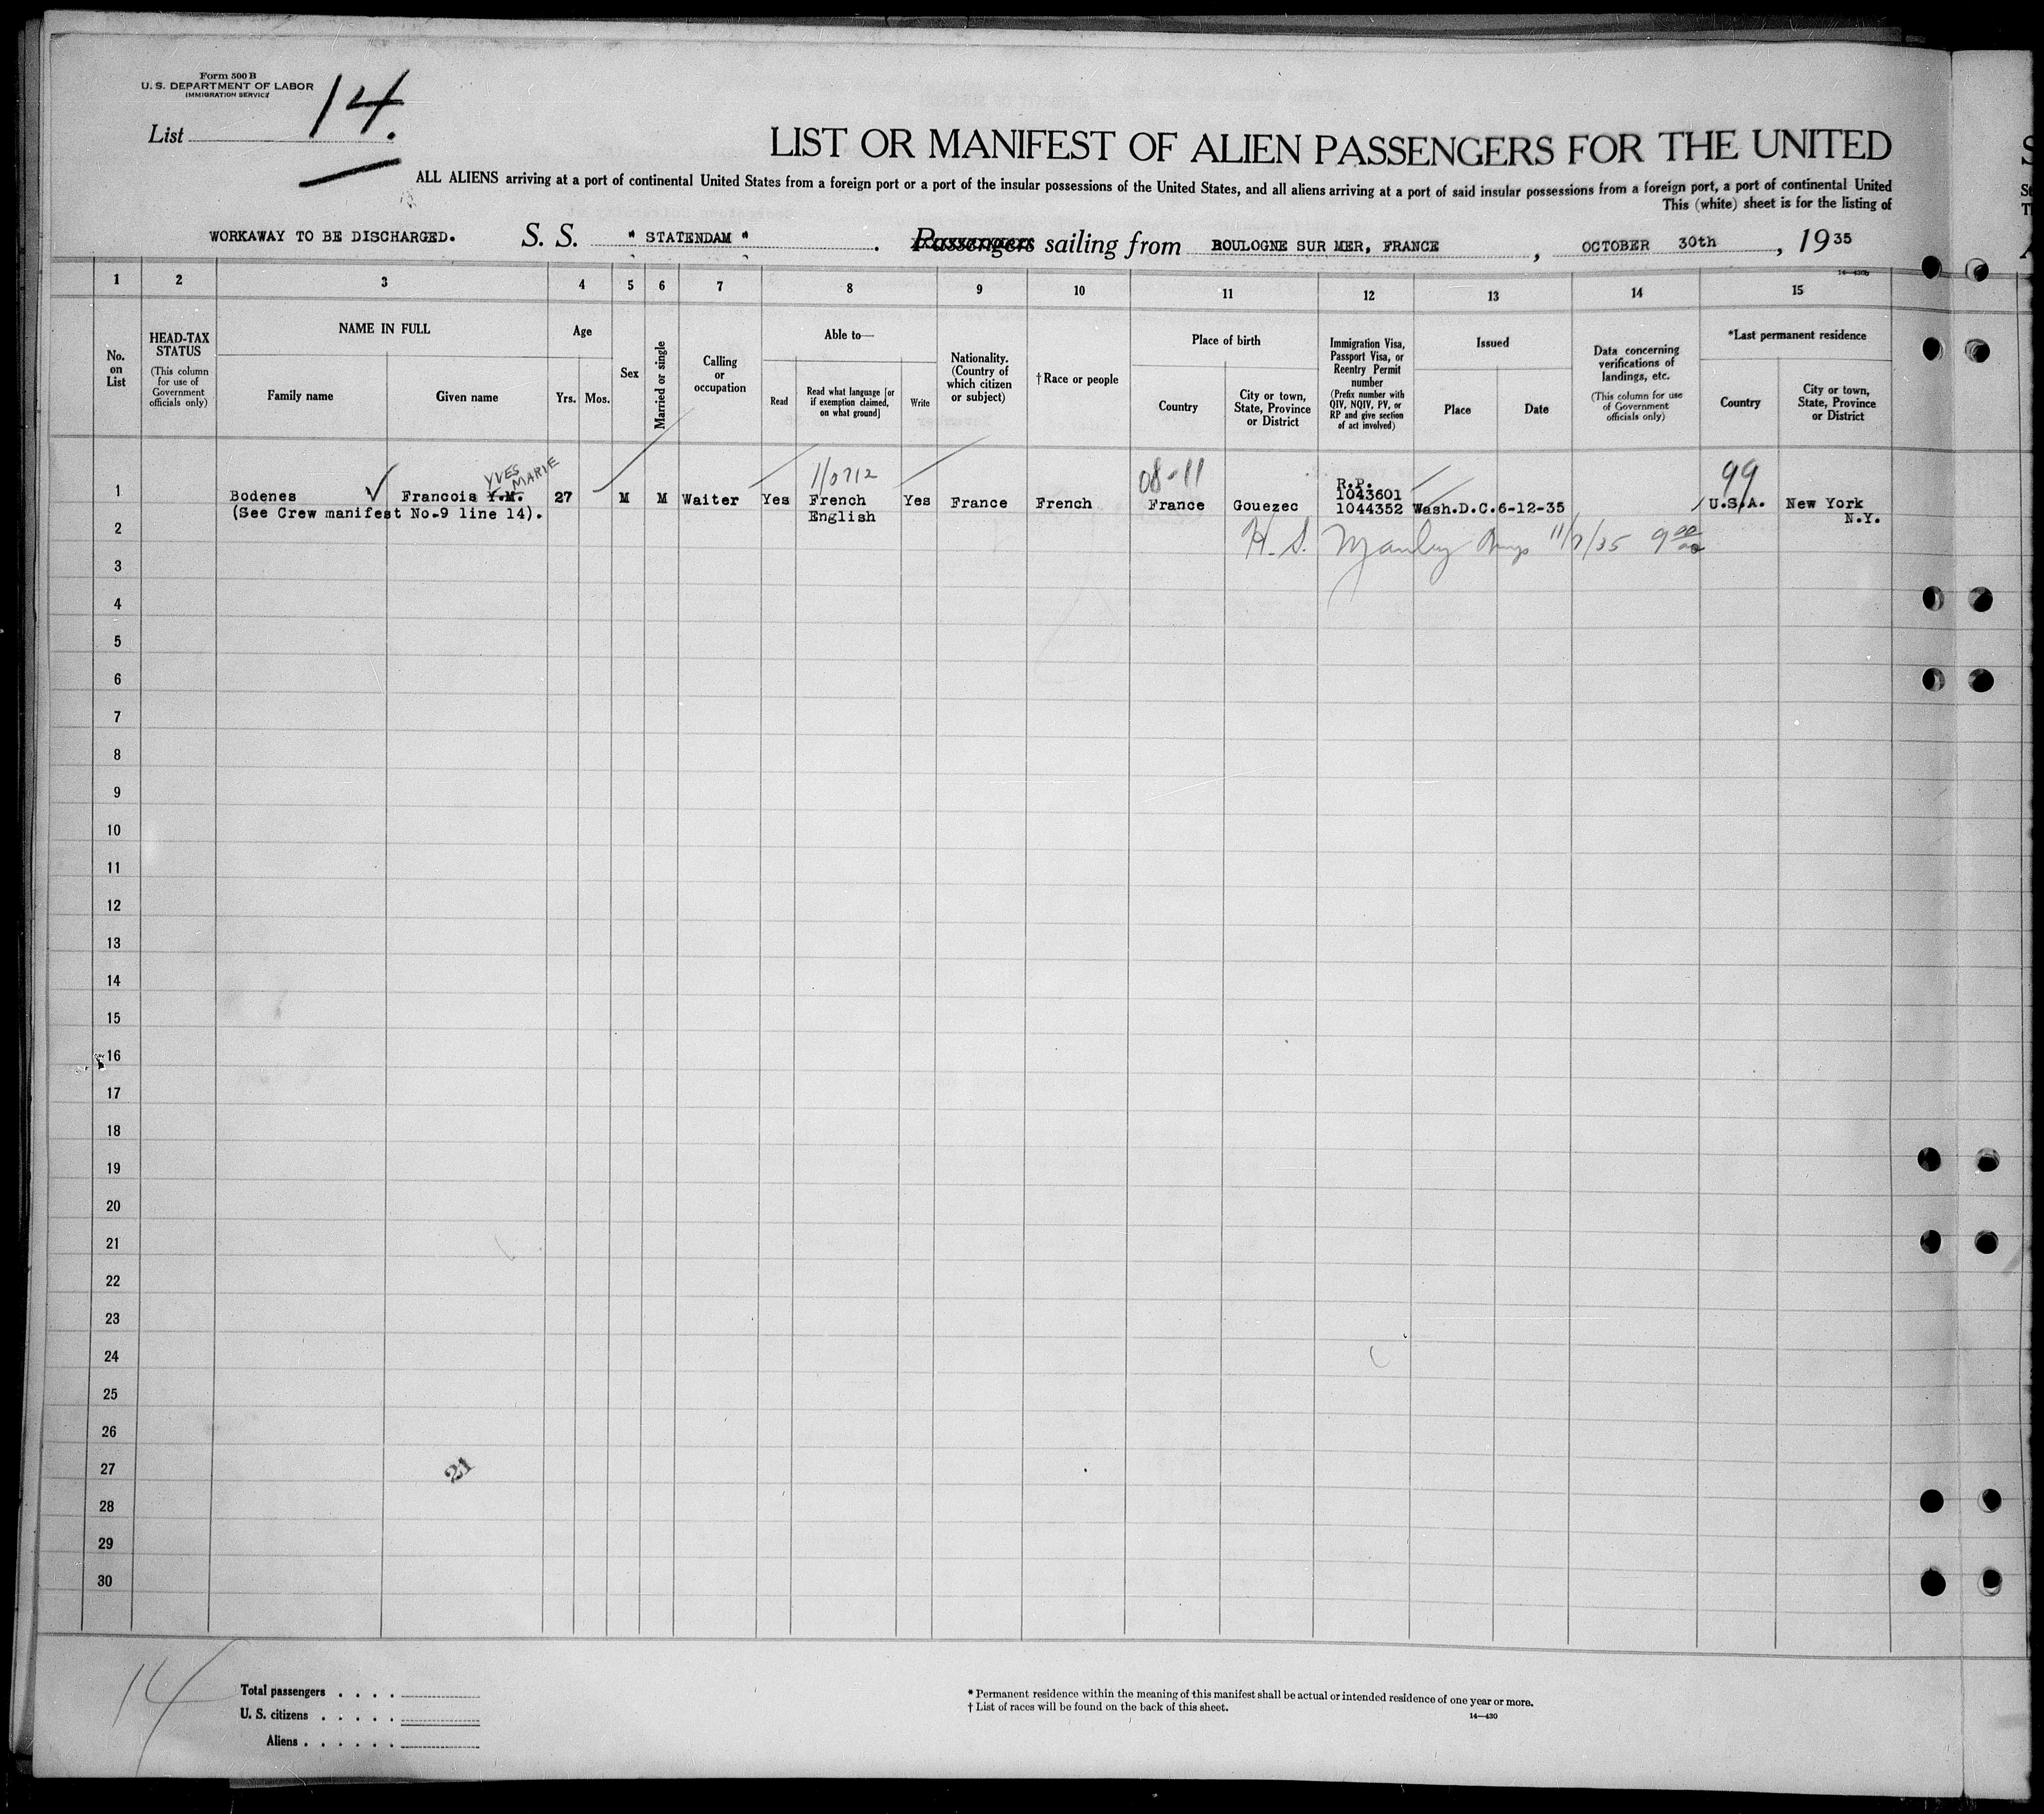 Form 500 B
U. S. DEPARTMENT OF LABOR
IMMIGRATION SERVICE
List 14.
LIST OR MANIFEST OF ALIEN PASSENGERS FOR THE UNITED
ALL ALIENS arriving at a port of continental United States from a foreign port or a port of the insular possessions of the United States, and all aliens arriving at a port of said insular possessions from a foreign port, a port of continental United
This (white) sheet is for the listing of
WORKAWAY TO BE DISCHARGED. S. S. " STATENDAM " . Passengers sailing from BOULOGNE SUR MER, FRANCE , OCTOBER 30th , 1935
1 2 3 4 5 6 7 8 9 10 11 12 13 14 15
No. on List
HEAD-TAX STATUS
(This column for use of Government officials only)
NAME IN FULL
Family name
Given name
Age
Yrs.
Mos.
Sex
Married or single
Calling or occupation
Able to—
Read
Read what language [or if exemption claimed, on what ground]
Write
Nationality. (Country of which citizen or subject)
†Race or people
Place of birth
Country
City or town, State, Province or District
Immigration Visa, Passport Visa, or Reentry Permit number
(Prefix number with QIV, NQIV, PV, or RP and give section of act involved)
Issued
Place
Date
Data concerning verifications of landings, etc.
(This column for use of Government officials only)
*Last permanent residence
Country
City or town, State, Province or District
YVES MARIE
11/0712
08-11
R.P.
99
1 Bodenes Francois Y.M. 27 M M Waiter Yes French Yes France French France Gouezec 1043601 Wash.D.C. 6-12-35 U.S.A. New York
(See Crew manifest No.9 line 14). English 1044352 N.Y.
2 H. S. Manley 11/7/35 9 00
3
4
5
6
7
8
9
10
11
12
13
14
15
16
17
18
19
20
21
22
23
24
25
26
27
21
28
29
30
14
Total passengers . . . .
U. S. citizens . . . . .
Aliens . . . . . .
* Permanent residence within the meaning of this manifest shall be actual or intended residence of one year or more.
† List of races will be found on the back of this sheet.
14—430